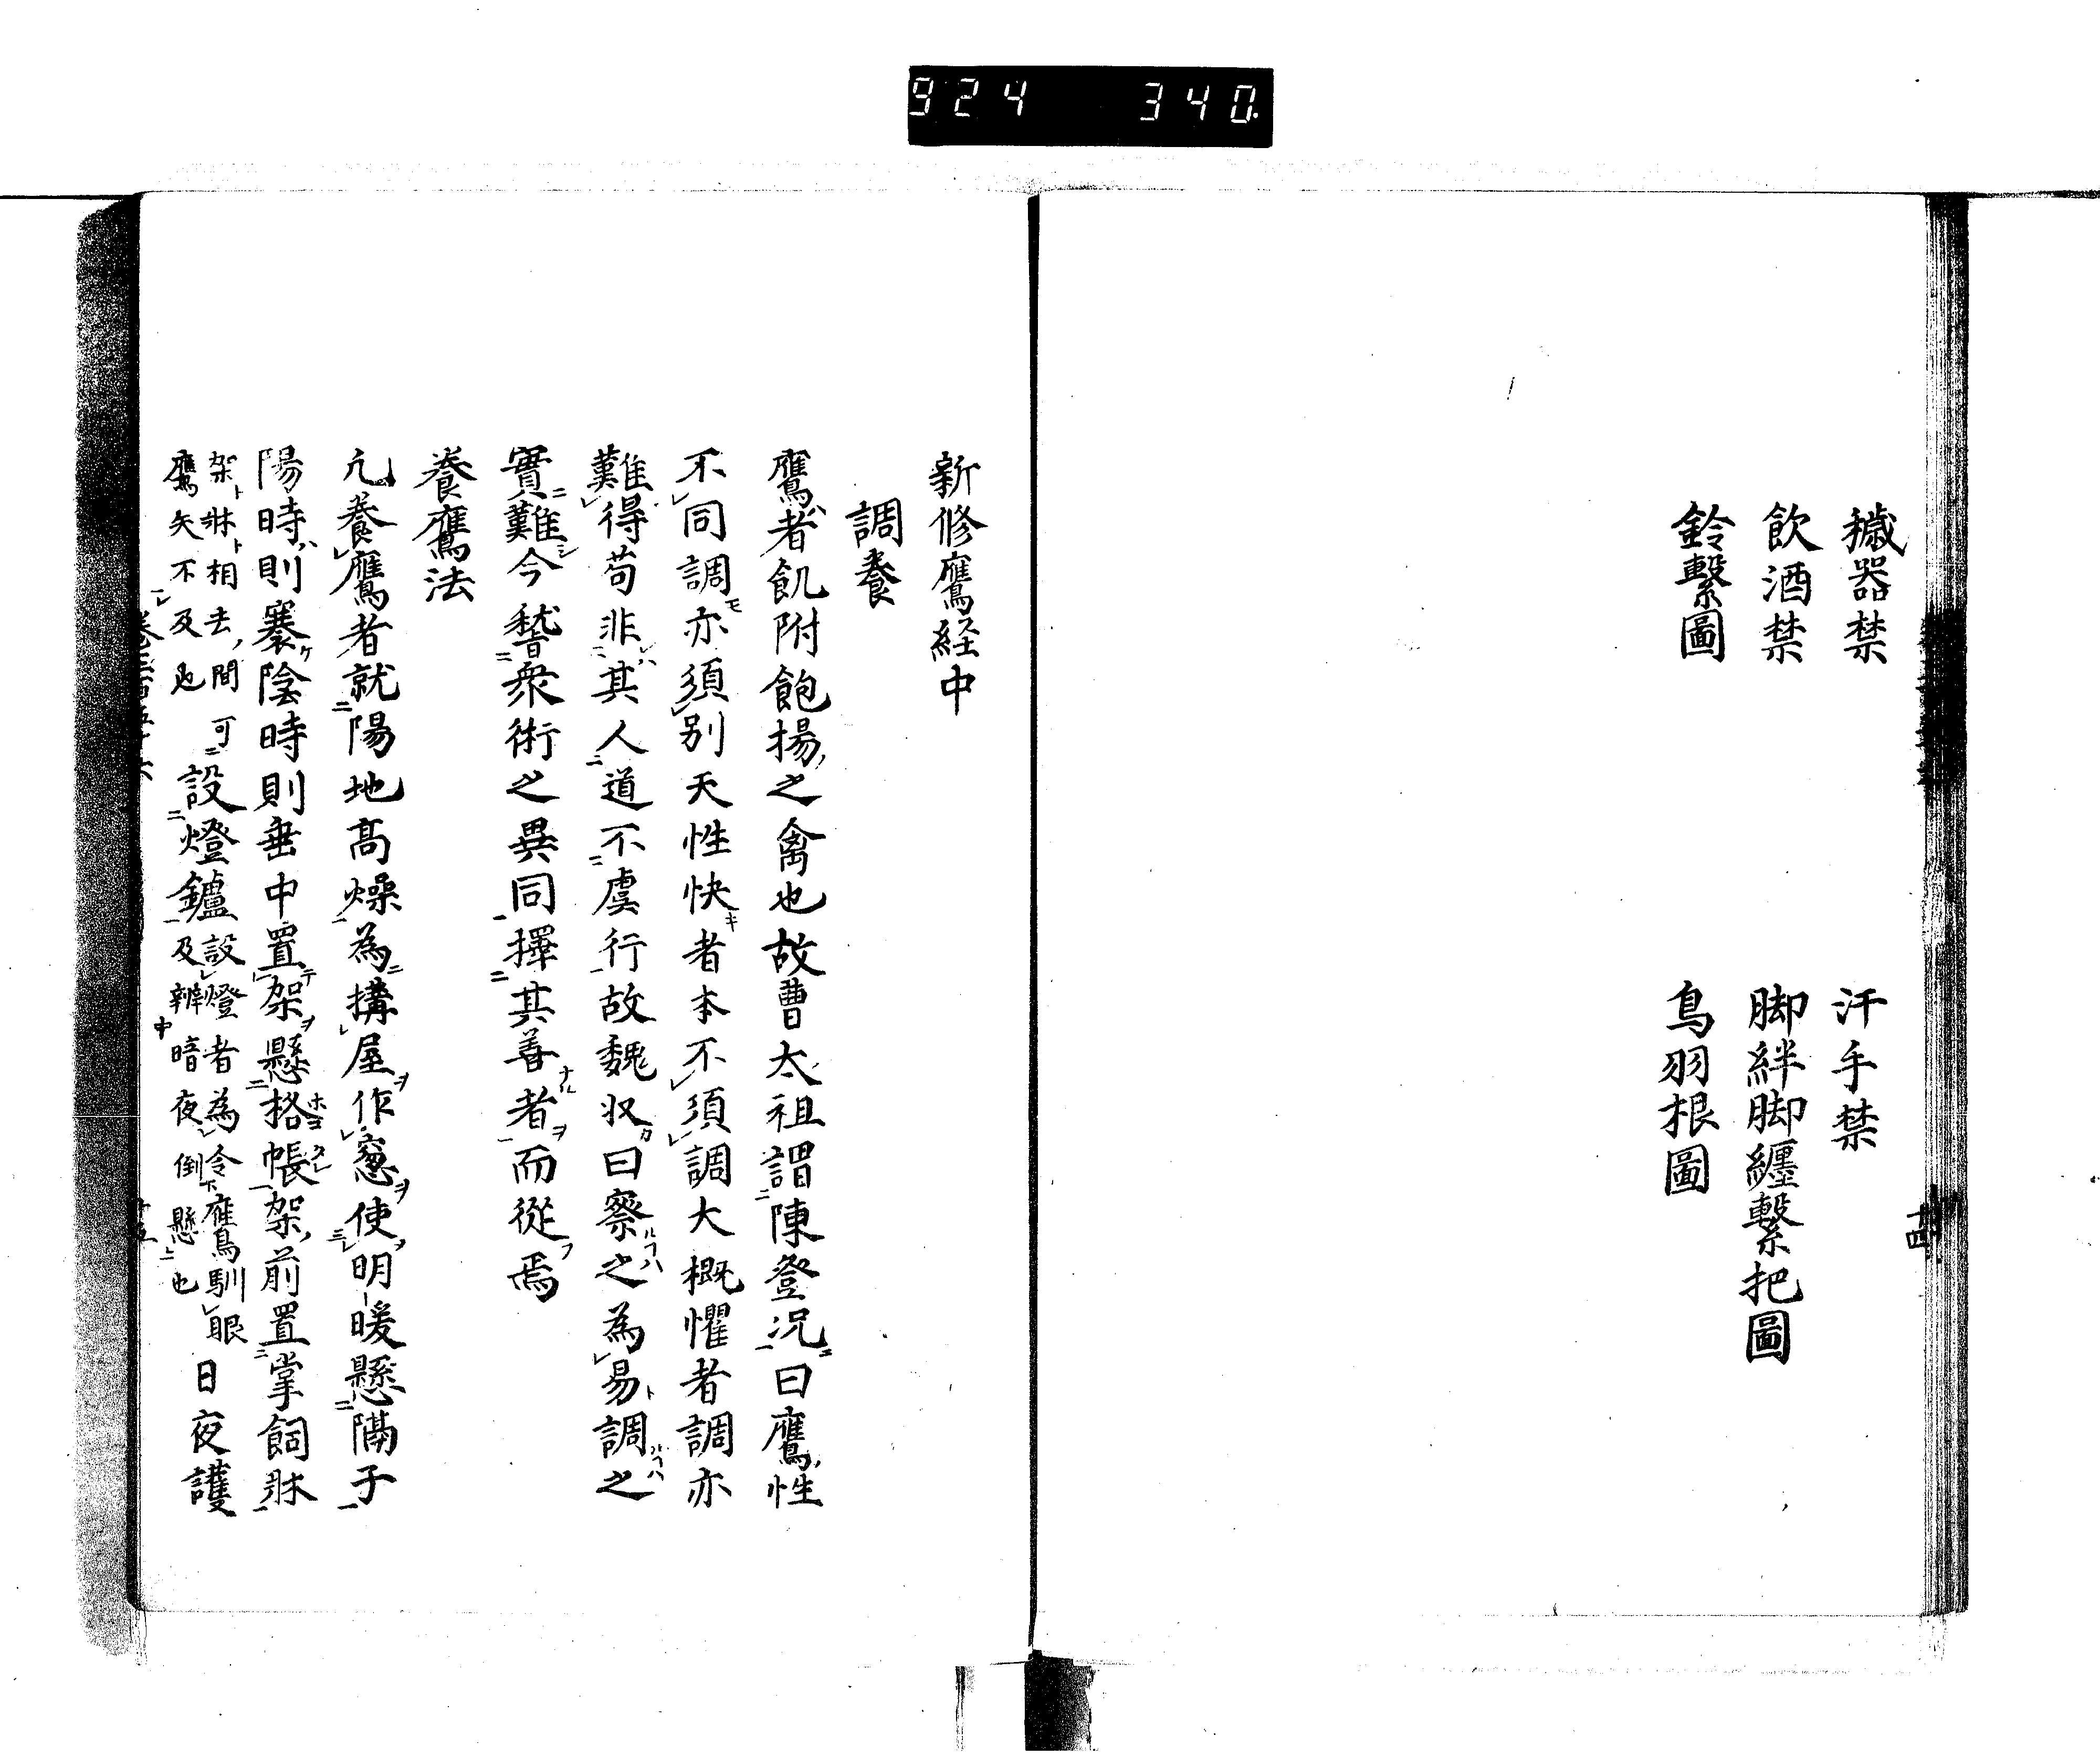 924 340
穢器禁 汗手禁
飲酒禁 脚絆脚纏繫把圖
鈴繫圖 鳥羽根圖
十四
新修鷹経中
調養
鷹者飢附飽揚之禽也故曹太祖謂陳登況曰鷹性
不同調亦須別天性快者本不須調大概懼者調亦
難得苟非其人道不虞行故魏収曰察之為易調之
實難今稽衆術之異同擇其善者而從焉
養鷹法
凢養鷹者就陽地高燥為搆屋作窓使明暖懸隔子
陽時則褰陰時則垂中置架懸格帳架前置掌飼牀
架牀相去間可
鷹矢不及也
設燈鑪
設燈者為令鷹馴眼
及辨暗夜倒懸也
日夜護